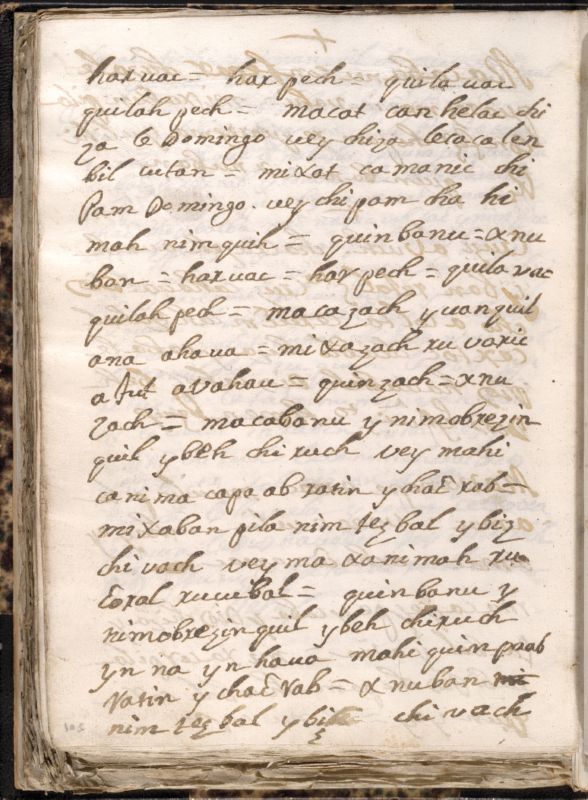 harvac = harpech = quila vac
quilah pech = macat canhelac chi
za le Domingo vey chiza lecacalen
bil cutan = mixat camanic chi
Pam Domingo. vey chipam cha hi
mah nimquih = quinbanu = xnu
ban = harvac = harpech = quila vac
quilah pech = macazach yvanquil
ana ahaua = mixazach ru varic
a tut avahau = quinzach = xnu
zach = macabanu y nimobrezin
quil ybeh chi ruch vey mahi
canima capa ab ratin ychac rab =
mixaban pila nim tezbal ybiz
chi vach vey ma xanimah ru
coral ruuubal = quinbanu y
nimobrezin quil ybeh chiruch
yn na yn haua mahi quin paab
ratin y chac rab = xnuban
nim tezbal ybi chi vach
105